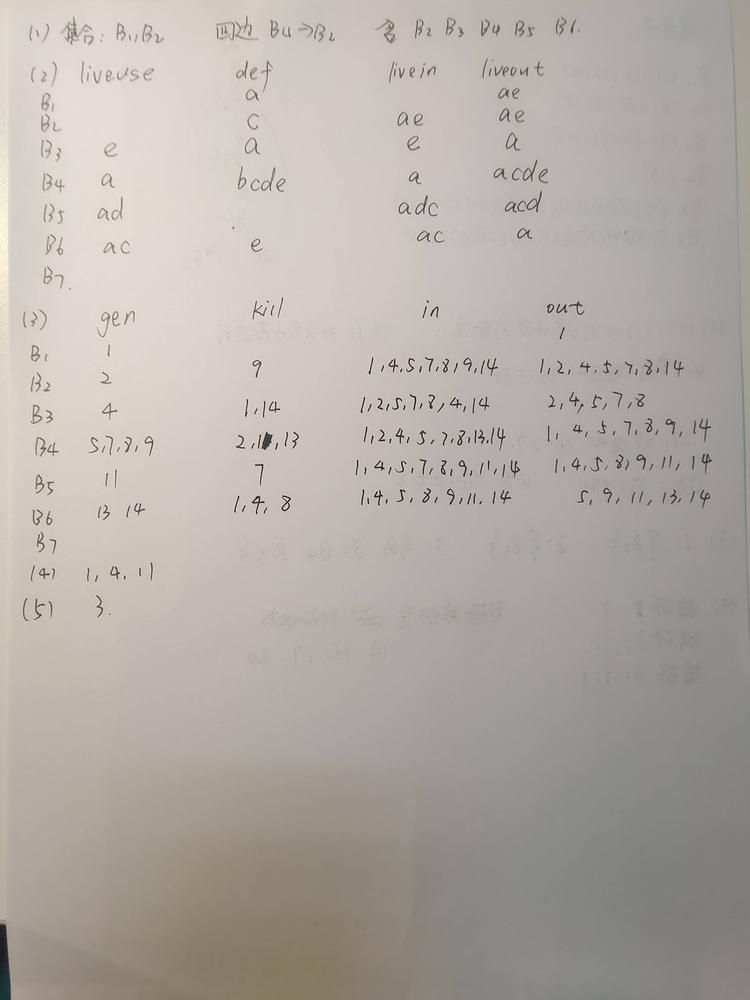 (1) 集合: B1,B2 回边 B4→B2 含 B2 B3 B4 B5 B6.
(2) liveuse def livein liveout
B1 a ae
B2 c ae ae
B3 e a e a
B4 a bcde a acde
B5 ad adc acd
B6 ac e ac a
B7.
(3) gen kill in out
B1 1 1
B2 2 9 1,4,5,7,8,9,14 1,2,4,5,7,8,14
B3 4 1,14 1,2,5,7,8,4,14 2,4,5,7,8
B4 5,7,8,9 2,11,13 1,2,4,5,7,8,13,14 1,4,5,7,8,9,14
B5 11 7 1,4,5,7,8,9,11,14 1,4,5,8,9,11,14
B6 13 14 1,4,8 1,4,5,8,9,11,14 5,9,11,13,14
B7
(4) 1,4,11
(5) 3.